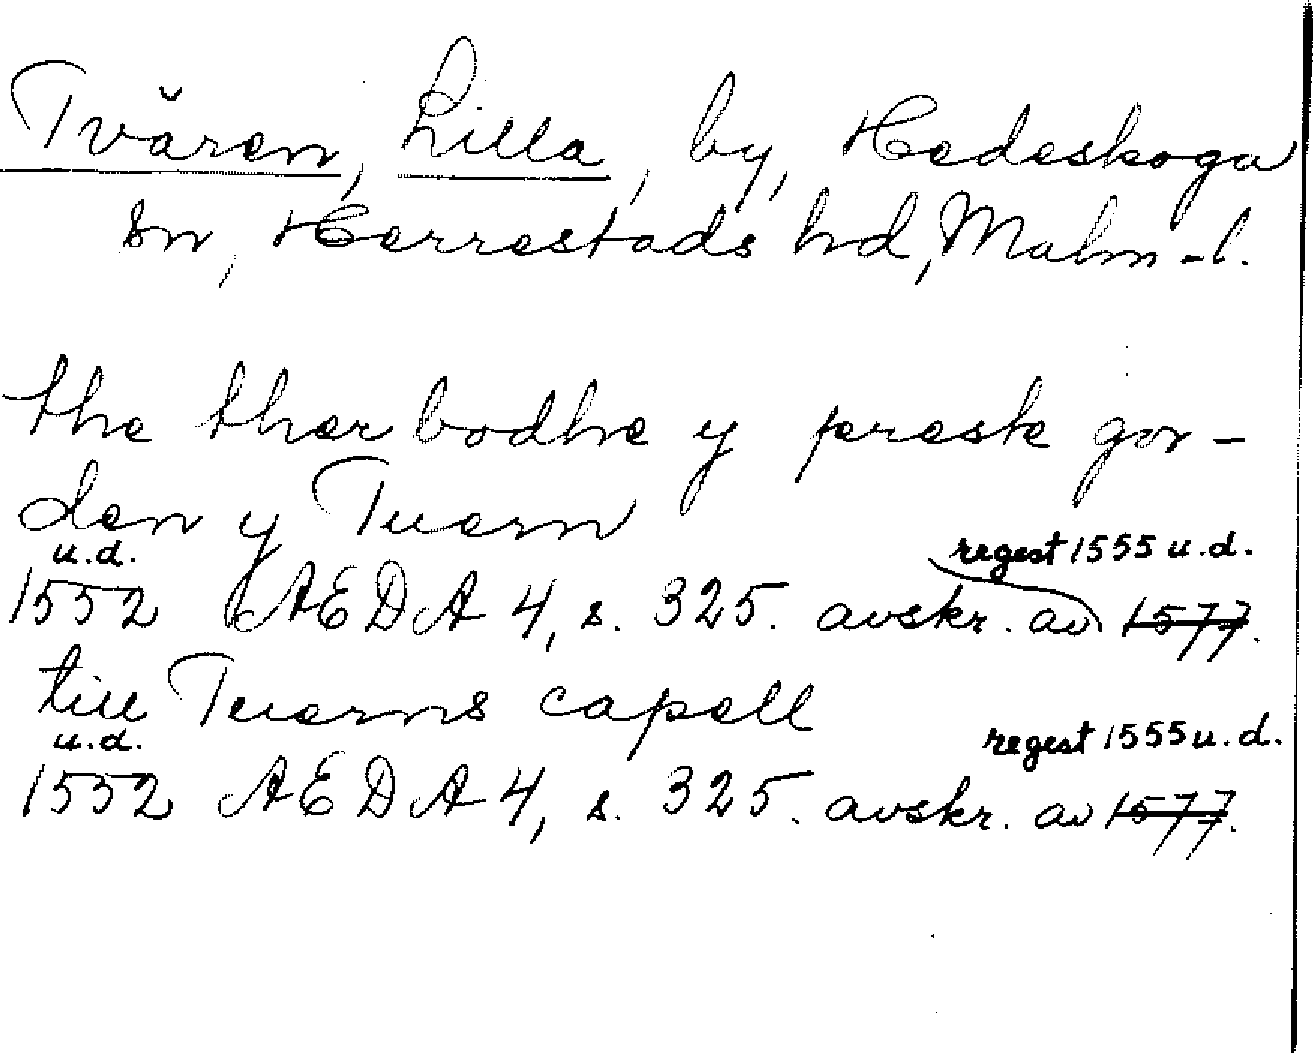 Tvären, Lilla, by, Hedeskoga
sn, Herrestads hd, Malm-l.
the ther bodhe y preste gor-
den y Tuern
u.d. regest 1555 u.d.
1552 AEDA 4, s. 325. avskr. av 1577.
till Tuerns capell
u.d. regest 1555 u.d.
1552 AEDA 4, s. 325. avskr. av 1577.